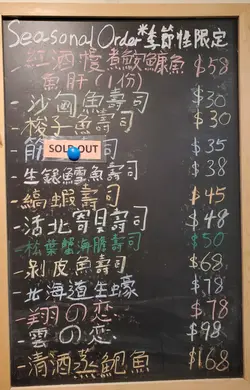 Seasonal Order*季節性限定
-紅酒慢煮鮟鱇魚 $58
魚肝(1份)
-沙甸魚壽司 $30
-梭子魚壽司 $30
SOLD OUT 司 $35
-生銀鱈魚壽司 $38
-縞蝦壽司 $45
-活北寄貝壽司 $48
-松葉蟹海膽壽司 $50
-剝皮魚壽司 $68
-北海道生蠔 $78
-翔の恋 $78
-雲の恋 $98
-清酒蒸鮑魚 $168